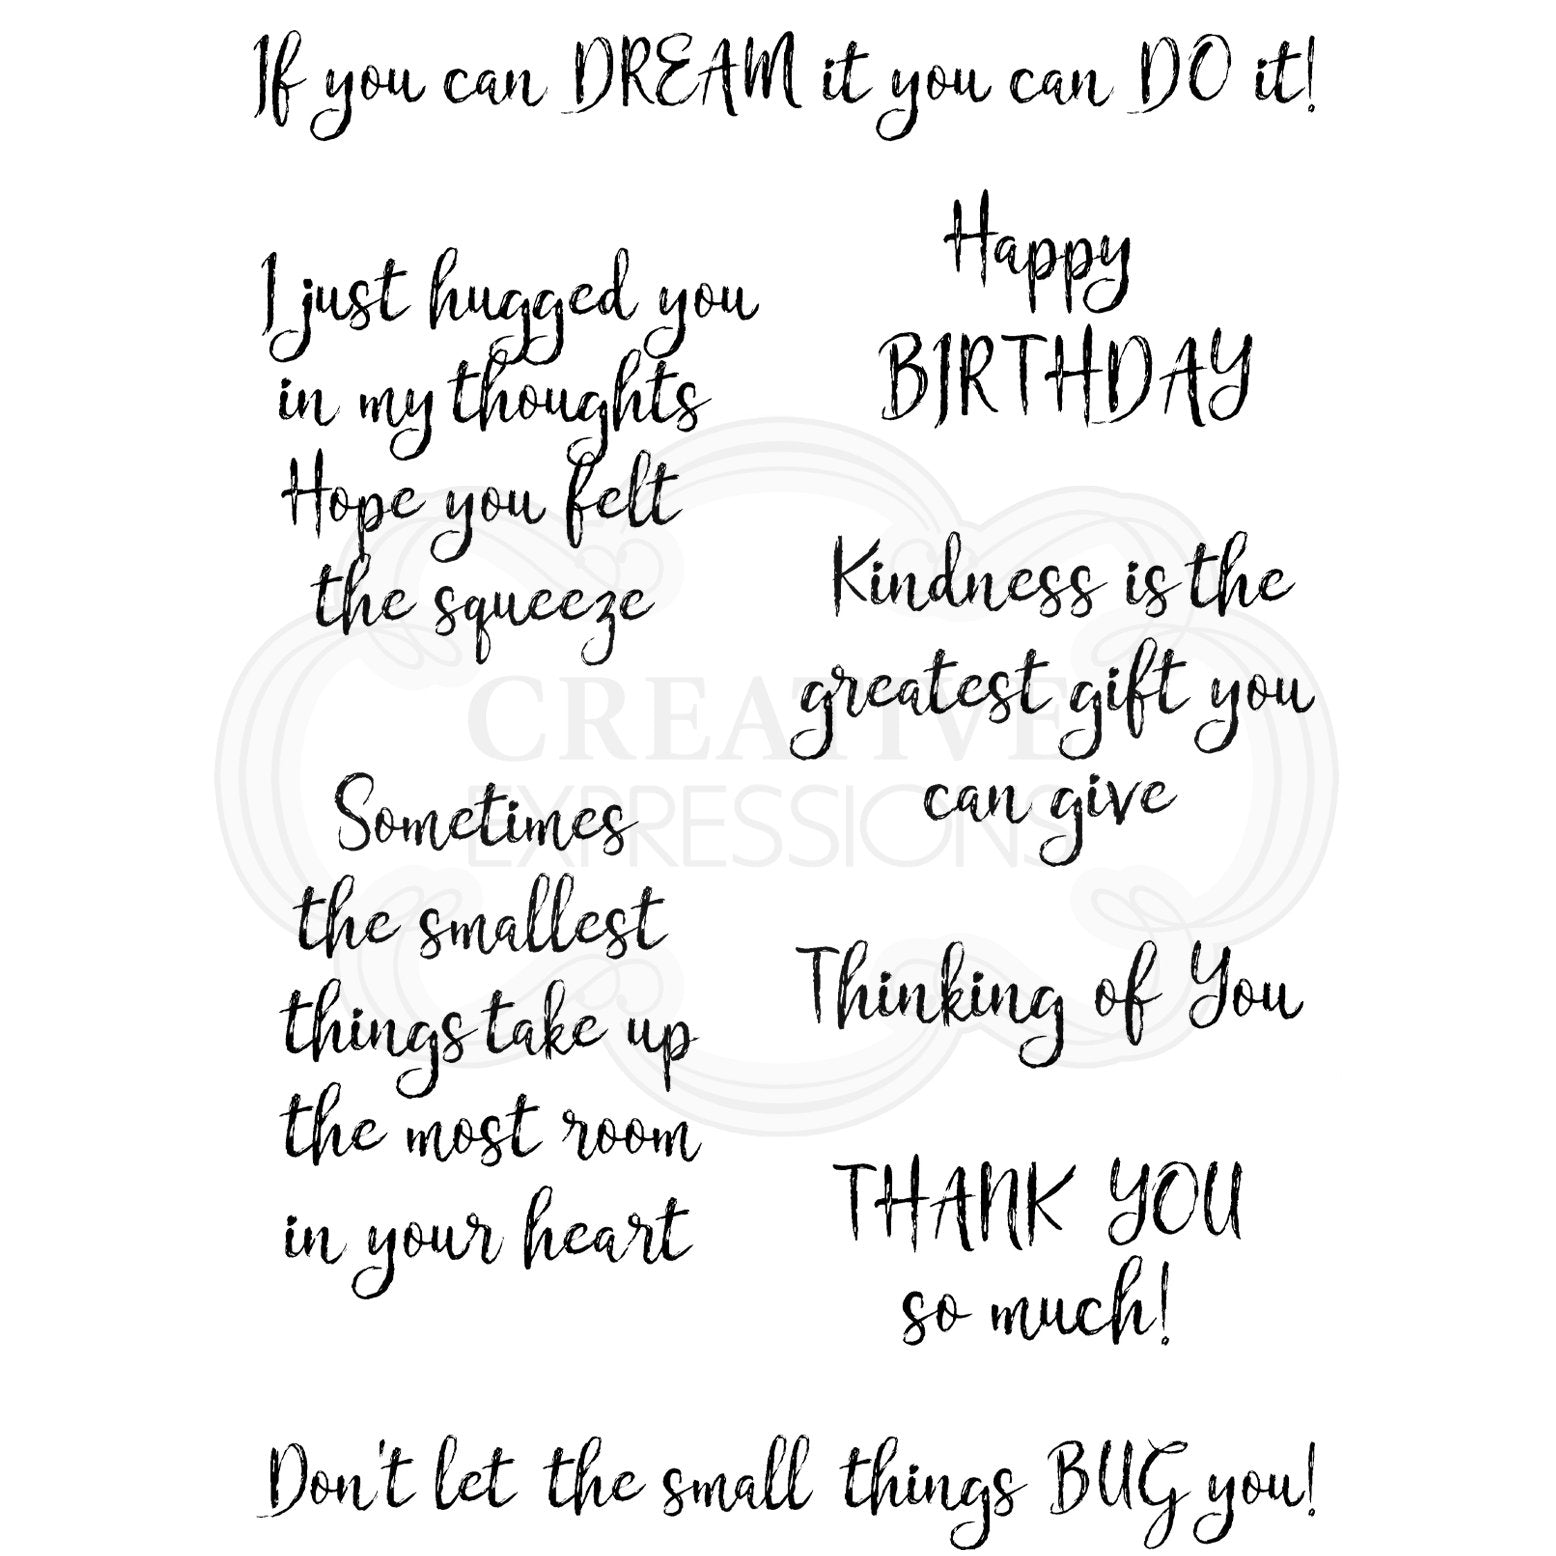 If you can DREAM it you can DO it!
I just hugged you
in my thoughts
Hope you felt
the squeeze
Happy
BIRTHDAY
Kindness is the
greatest gift you
can give
CREATIVE
EXPRESSIONS
Sometimes
the smallest
things take up
the most room
in your heart
Thinking of You
THANK YOU
so much!
Don't let the small things BUG you!